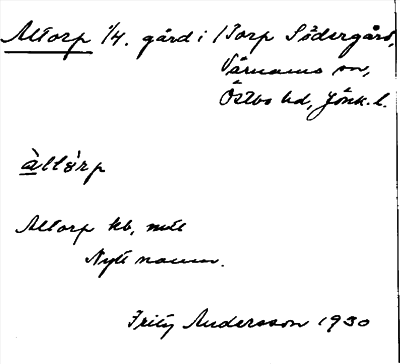 Altorp 1/4. gård i Torp Södergård,
Värnamo sn,
Östbo hd, Jönk. l.
àltò̱rp
Altorp kb, mtl
Nytt namn.
Fritz Andersson 1930